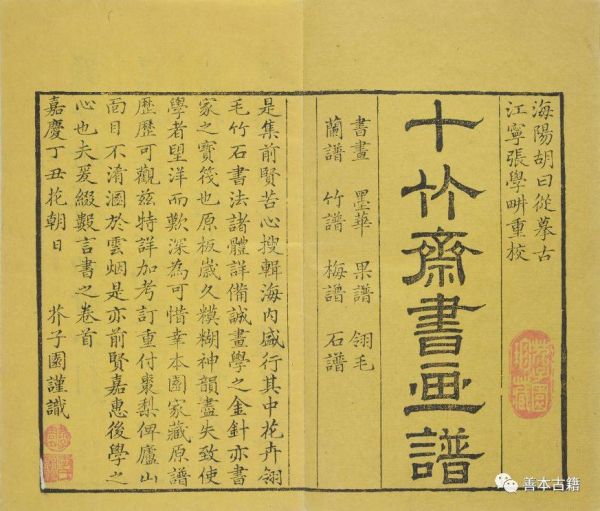 海陽胡曰從摹古
江寧張學畊重校
十竹齋書画譜
書畫 墨華 果譜 翎毛
蘭譜 竹譜 梅譜 石譜
是集前賢苦心搜輯海內盛行其中花卉翎
毛竹石書法諸體詳備誠畫學之金針亦書
家之寶筏也原板嵗久糢糊神韻盡失致使
學者望洋而歎深為可惜幸本園家藏原譜
歷歷可觀兹特詳加考訂重付棗梨俾廬山
面目不淆溷於雲烟是亦前賢嘉惠後學之
心也夫爰綴數言書之卷首
嘉慶丁丑花朝日 芥子園謹識
善本古籍